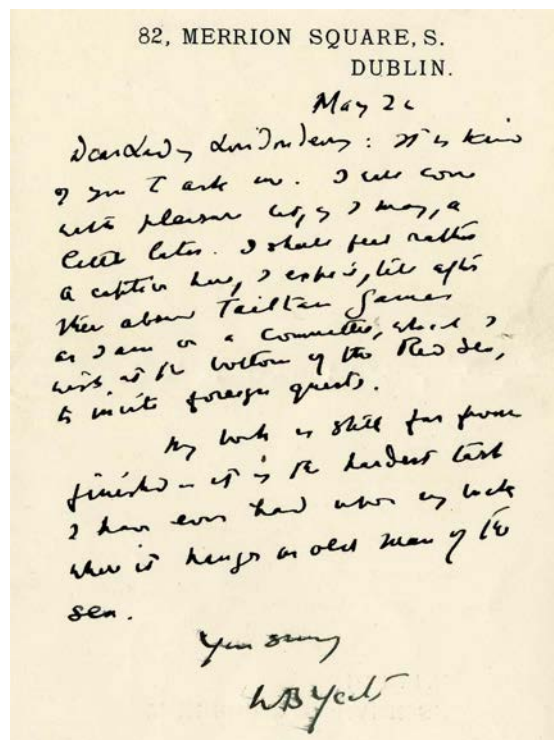 82, MERRION SQUARE, S.
DUBLIN.
May 26
Dear Lady Londonderry: It is kind
of you to ask me. I will come
with pleasure but, if I may, a
little later. I shall feel rather
a captive here, I expect, till after
these absurd Tailtean Games
as I am on a Committee, which I
wish at the bottom of the Red Sea,
to invite foreign guests.
My book is still far from
finished – it is the hardest task
I have ever had upon my back
where it hangs an old man of the
sea.
Yrs sincely
WB Yeats